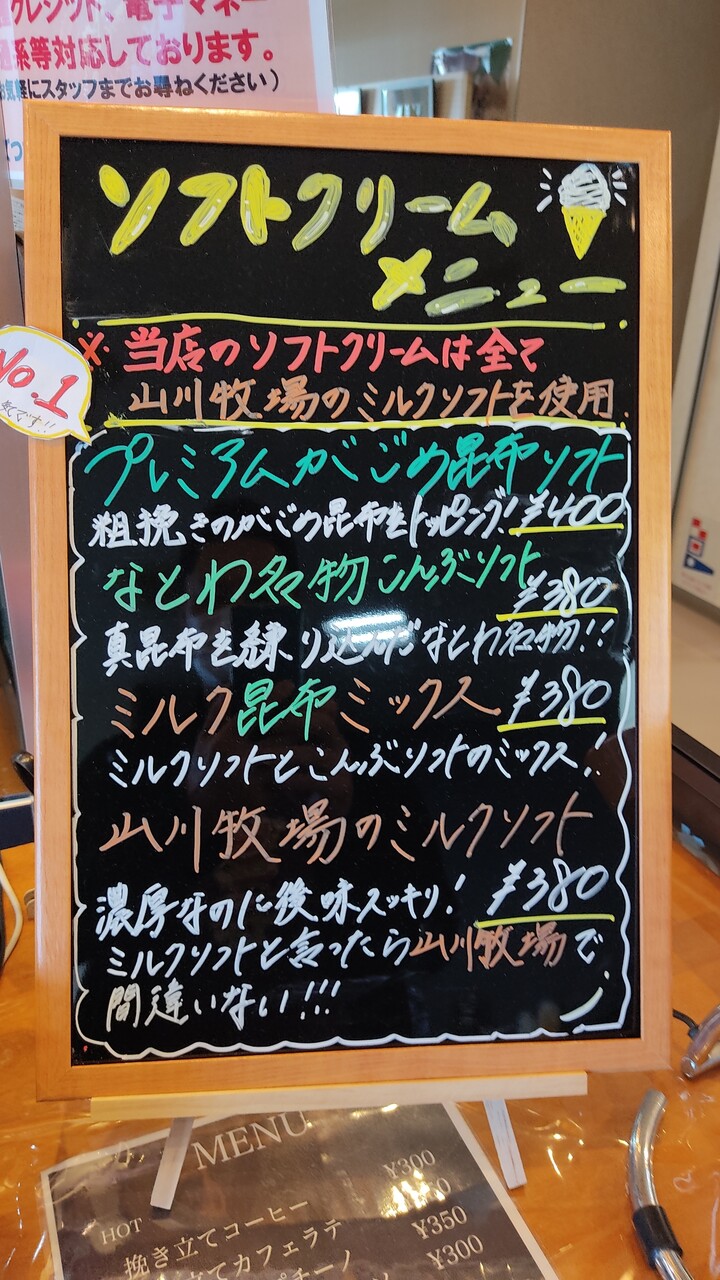 クレジット、電子マネー
係等対応しております。
気軽にスタッフまでお尋ねください)
ソフトクリーム
メニュー
※当店のソフトクリームは全て
山川牧場のミルクソフトを使用
No.1
気です!!
プレミアムがごめ昆布ソフト
粗挽きのがごめ昆布をトッピング! ¥400
なとわ名物こんぶソフト
¥380
真昆布を練り込んだなとわ名物!!
ミルク昆布ミックス ¥380
ミルクソフトとこんぶソフトのミックス!
山川牧場のミルクソフト
濃厚なのに後味スッキリ! ¥380
ミルクソフトと言ったら山川牧場で
間違いない!!!
MENU
HOT
挽き立てコーヒー ¥300
立てカフェラテ
¥350
¥300